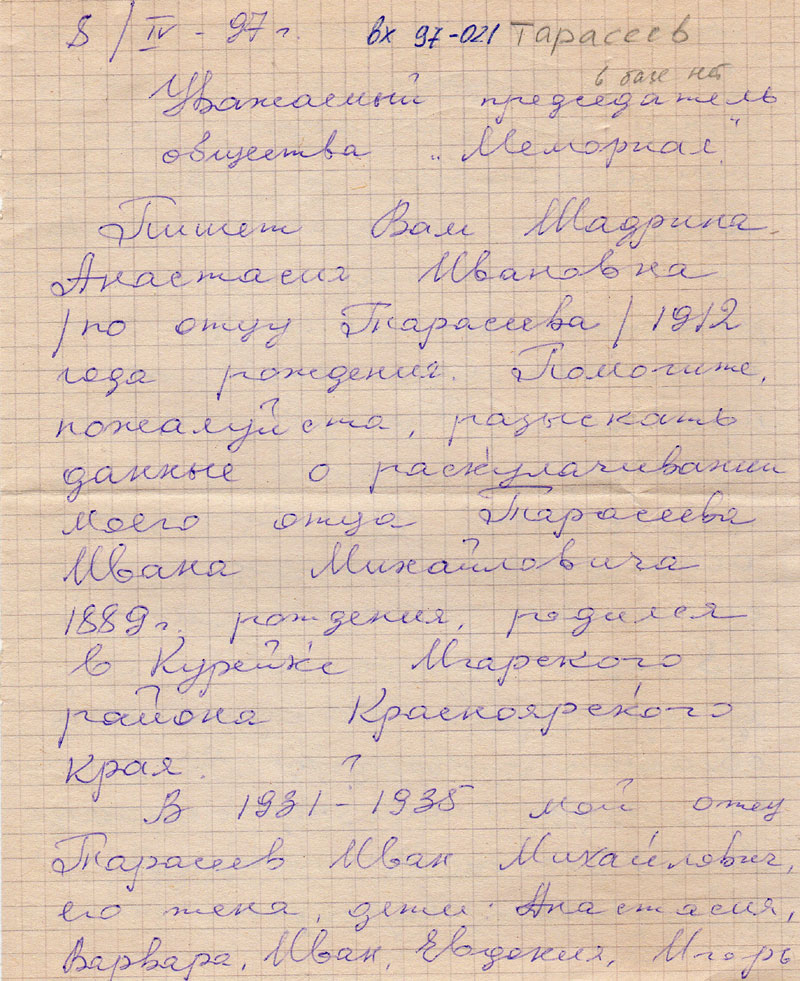 8/IV - 97 г. вх 97-021 Тарасеев
в базе нет
Уважаемый председатель
общества „Мемориал".
Пишет Вам Шадрина
Анастасия Ивановна
/по отцу Тарасеева/ 1912
года рождения. Помогите,
пожалуйста, разыскать
данные о раскулачивании
моего отца Тарасеева
Ивана Михайловича
1889г. рождения, родился
в Курейке Игарского
района Красноярского
края.
В 1931 - 1935 ? мой отец
Тарасеев Иван Михайлович,
его жена, дети: Анастасия,
Варвара, Иван, Евдокия, Игорь